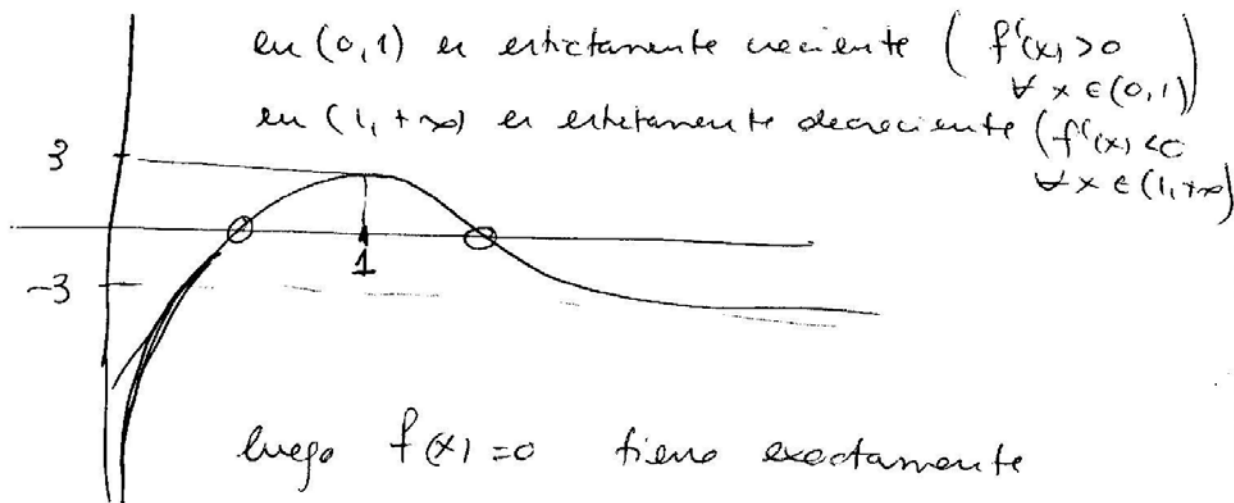 en (0,1) es estrictamente creciente ( f'(x) > 0
∀ x ∈ (0,1) )
en (1, +∞) es estrictamente decreciente ( f'(x) < 0
∀ x ∈ (1, +∞)
3
1
-3
luego f(x) = 0 tiene exactamente